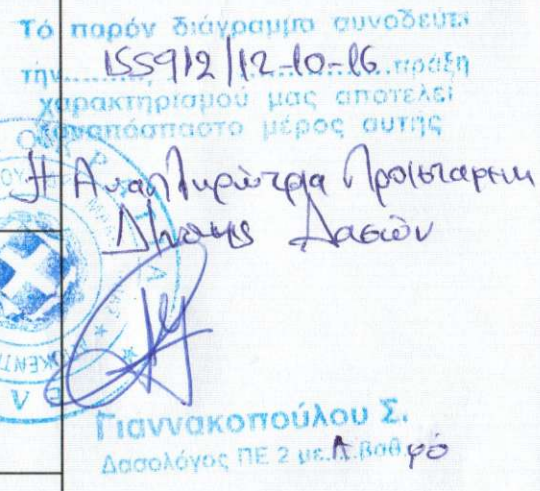 Τό παρόν διάγραμμα συνοδεύει
τήν....155912/12-10-16..πράξη
χαρακτηρισμού μας αποτελεί
αναπόσπαστο μέρος αυτής
Η Αναπληρώτρια Προϊσταμένη
Δ/νσης Δασών
Γιαννακοπούλου Σ.
Δασολόγος ΠΕ 2 με Α βαθμό